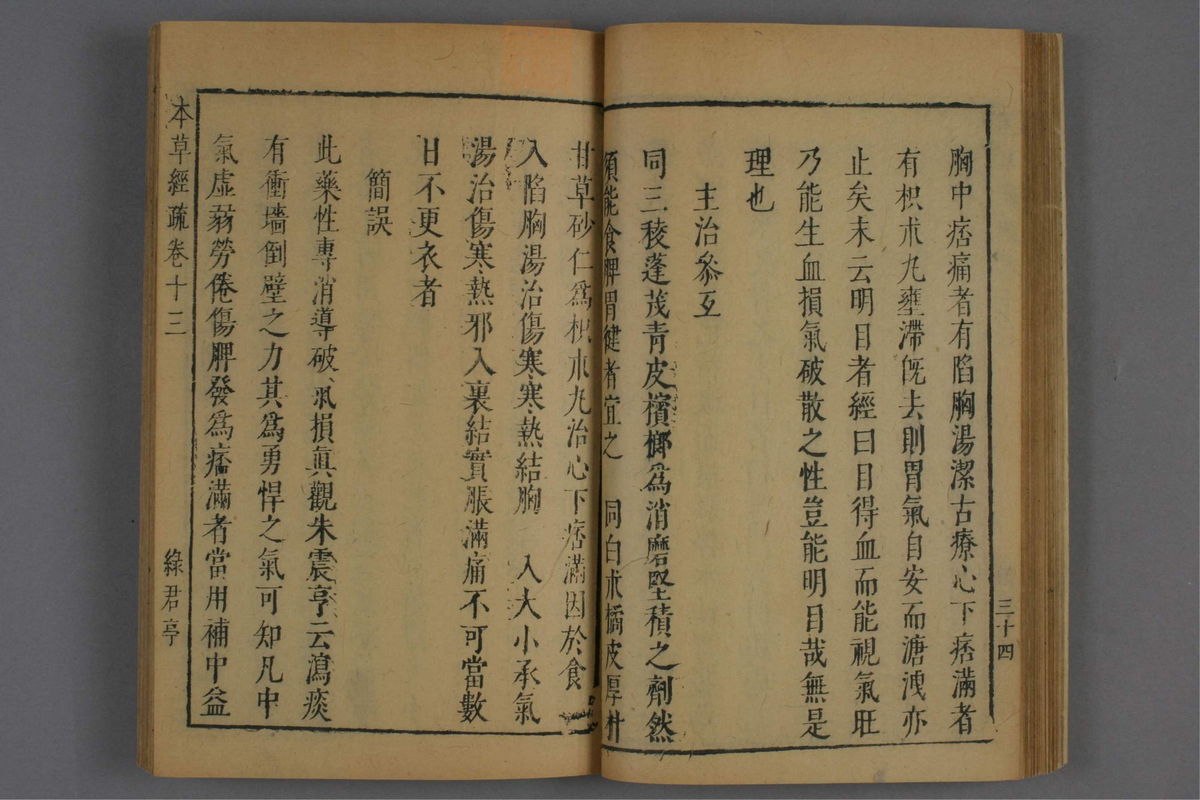 胸中痞痛者有陷胸湯潔古療心下痞滿者
有枳朮丸壅滯既去則胃氣自安而溏洩亦
止矣末云明目者經曰目得血而能視氣旺
乃能生血損氣破散之性豈能明目哉無是
理也
主治參互
同三稜蓬茂青皮檳榔為消磨堅積之劑然
須能食脾胃健者宜之 同白朮橘皮厚朴
甘草砂仁為枳朮丸治心下痞滿因於食
入陷胸湯治傷寒寒熱結胸 入大小承氣
湯治傷寒熱邪入裏結實脹滿痛不可當數
日不更衣者
簡誤
此藥性專消導破氣損眞觀朱震亨云瀉痰
有衝墻倒壁之力其爲勇悍之氣可知凡中
氣虛弱勞倦傷脾發爲痞滿者當用補中益
三十四
本草經疏卷十三
綠君亭